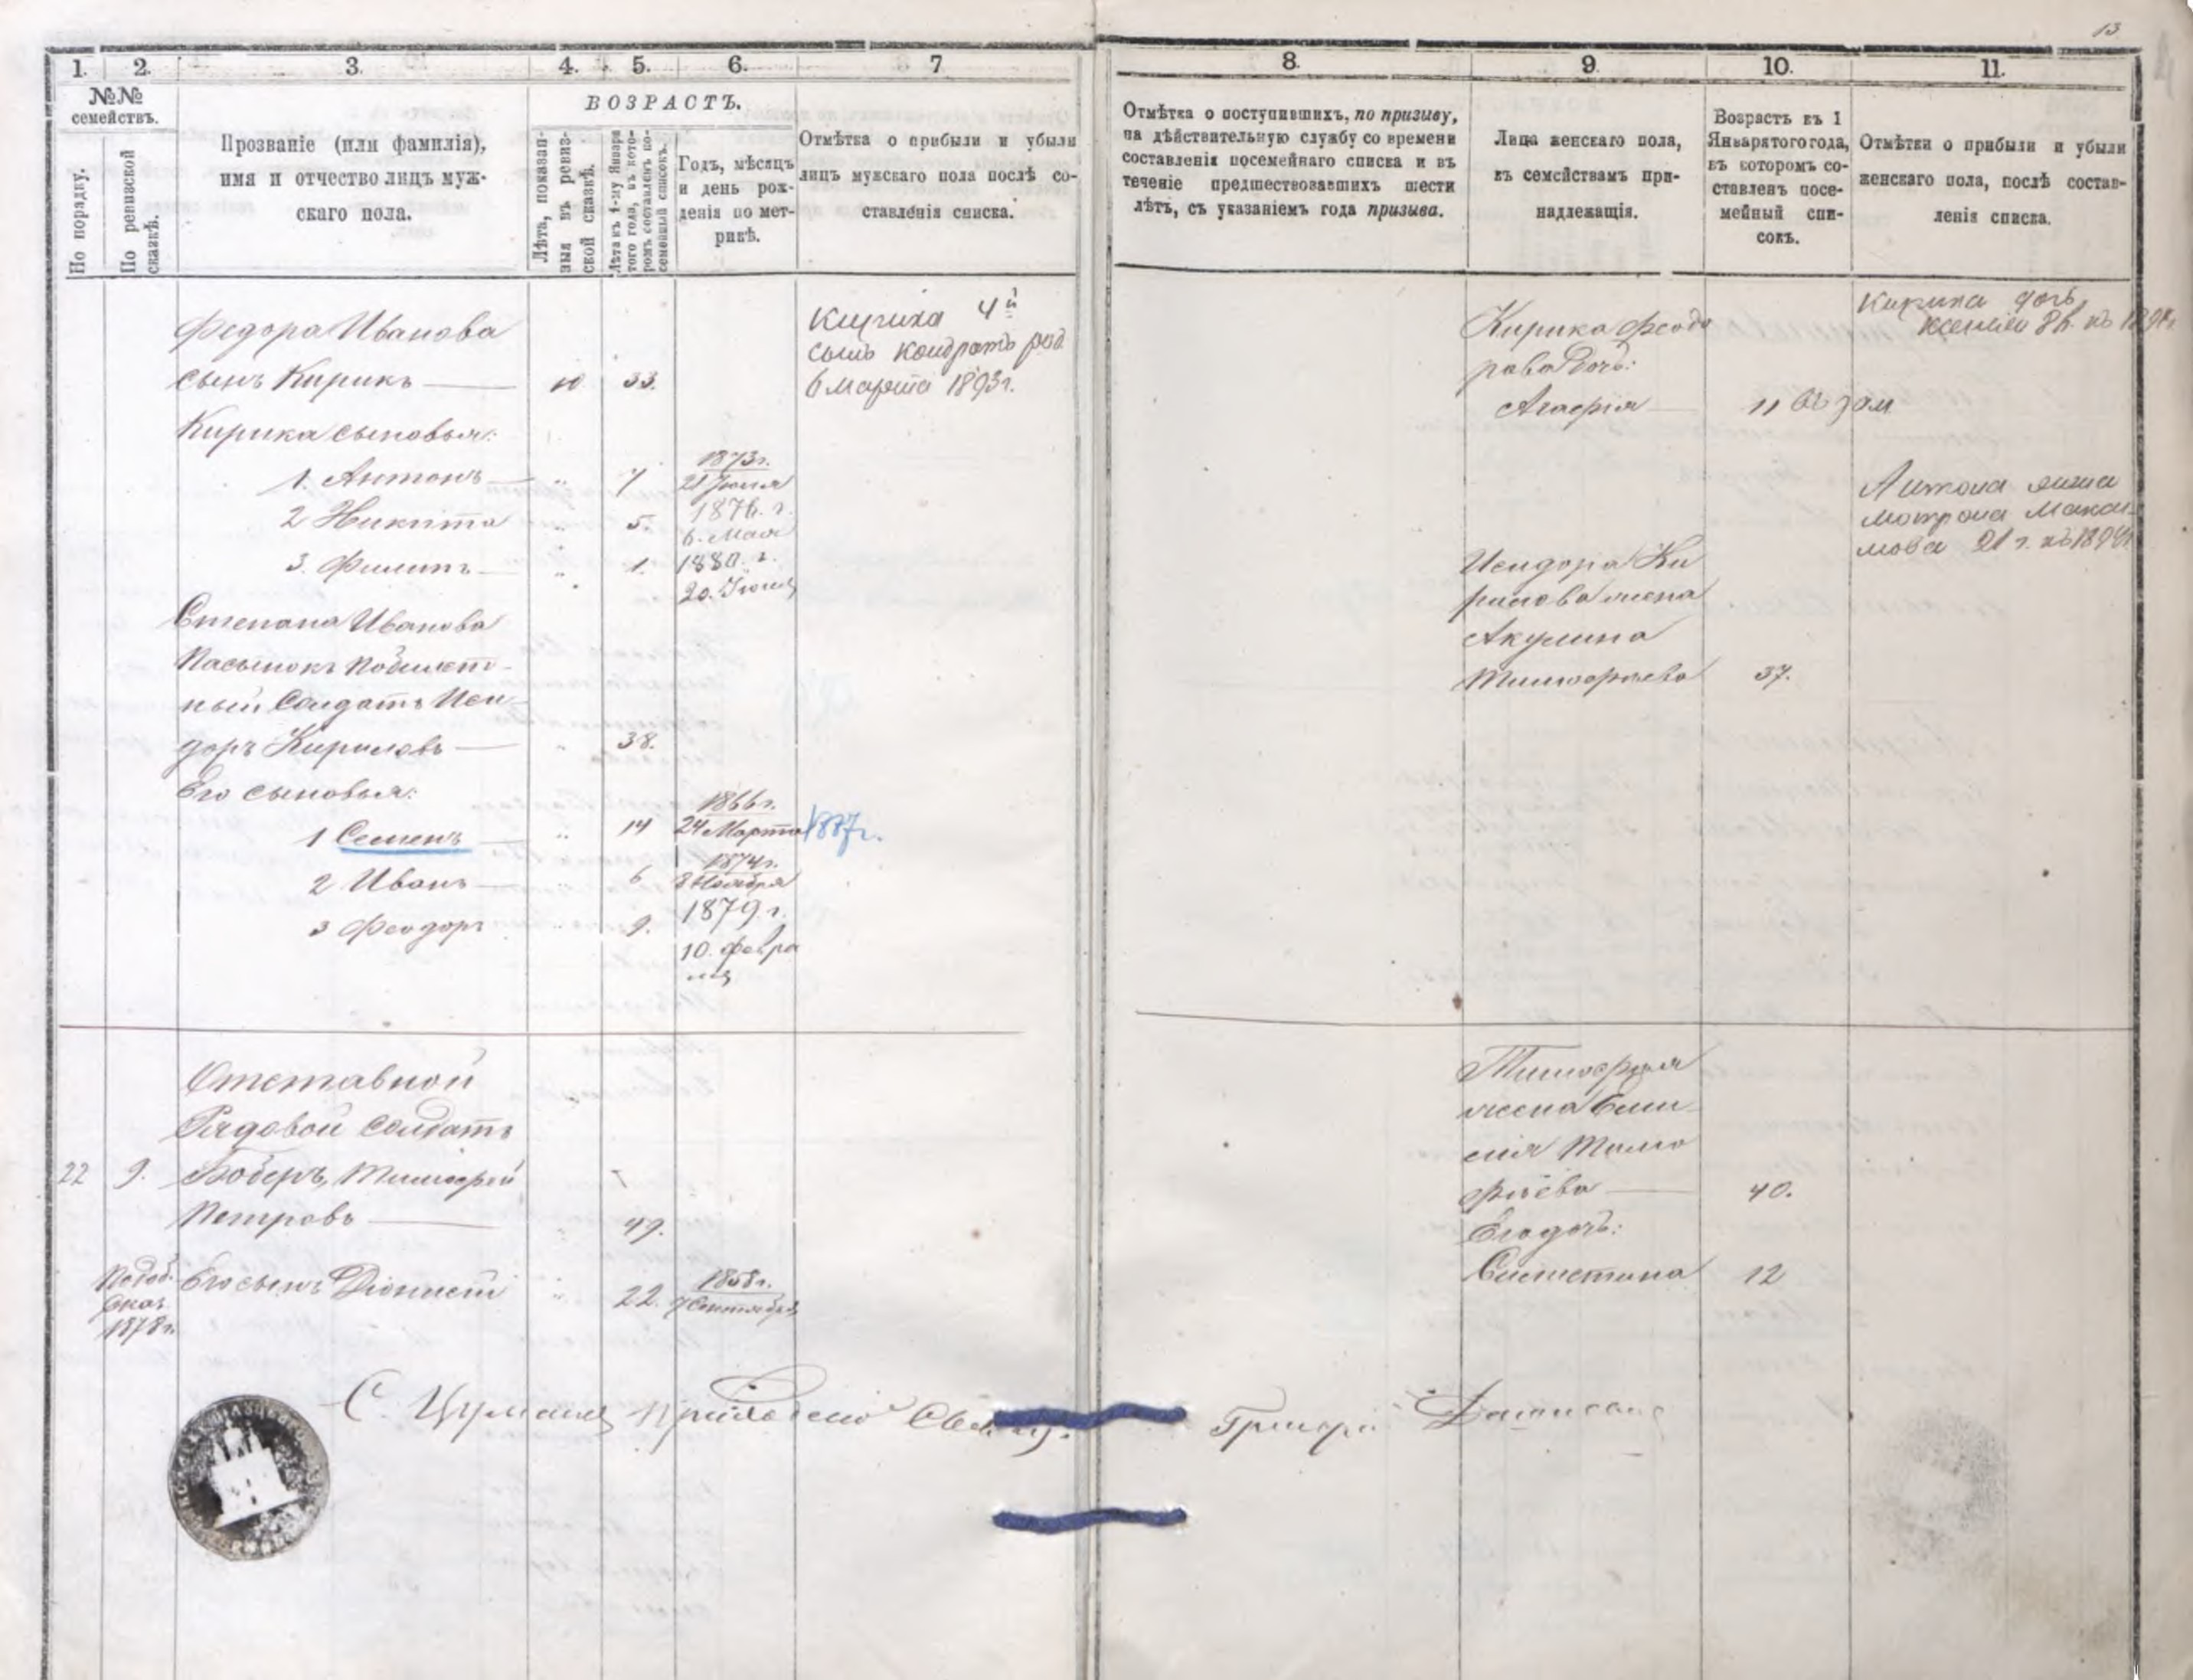 13
1. 2. 3. 4. 5. 6. 7
№№ семействъ.
По порядку.
По ревизской сказкѣ.
Прозваніе (или фамилія),
имя и отчество лицъ муж-
скаго пола.
ВОЗРАСТЪ.
Лѣта, показан-
ныя въ ревиз-
ской сказкѣ.
Лѣта къ 1-му Января
того года, въ кото-
ромъ составленъ по-
семейный списокъ.
Годъ, мѣсяцъ
и день рож-
денія по мет-
рикѣ.
Отмѣтка о прибыли и убыли
лицъ мужскаго пола послѣ со-
ставленія списка.
Федора Иванова
сынъ Кирикъ 10 33.
Кирика 4й
сынъ Кондратъ род
6 Марта 1893г.
Кирика сыновья:
1. Антонъ " 7 1873г.
21 Июля
2 Никита " 5. 1876. г.
6. Мая
3. Филипъ " 1. 1880. г.
20. Іюня
Степана Иванова
Пасынокъ Побилет-
ный Солдатъ Иси-
доръ Кириловъ " 38.
Его сыновья:
1 Семенъ " 14 1866г.
24 Марта 1887г.
2 Иванъ " 6 1874г.
8 Ноября
3 Феодоръ " 1879 г.
10. Февра
ля
Отставной
Рядовой Солдатъ
22 9. Боберъ, Тимофей
Петровъ " 49.
Его сынъ Діонисій " 22. 1858г.
7 Сентября
По доб.
сказ.
1878г.
С. Цумань
8. 9. 10. 11.
Отмѣтка о поступившихъ, по призыву,
на дѣйствительную службу со времени
составленія посемейнаго списка и въ
теченіе предшествовавшихъ шести
лѣтъ, съ указаніемъ года призыва.
Лица женскаго пола,
къ семействамъ при-
надлежащія.
Возрастъ къ 1
Января того года,
въ которомъ со-
ставленъ посе-
мейный спи-
сокъ.
Отмѣтки о прибыли и убыли
женскаго пола, послѣ состав-
ленія списка.
Кирика Феодо
рова Дочь:
Агафія 11 въ зам
Кирика дочь
Ксенія 8 л. къ
Антона жена
Мотрона Макси-
мова 21 г. къ 1894г
Исидора Ки
рилова жена
Акулина
Тимофеева 37.
Тимофея
жена
Тимо
фіева 40.
Его дочь:
12
Григорій